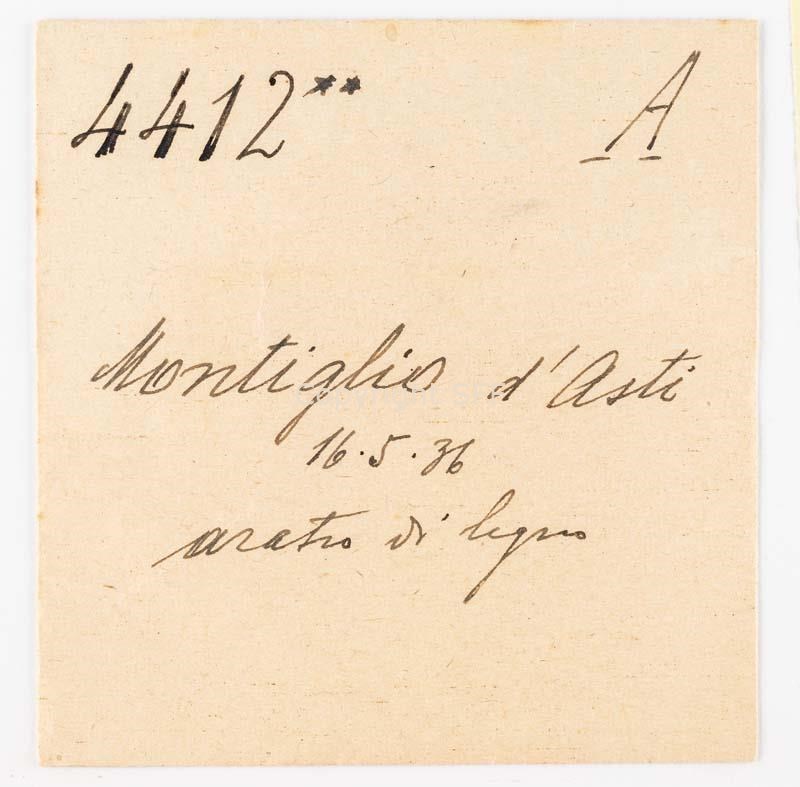 4412** A
Montiglio d'Asti
16.5.36
aratro di legno